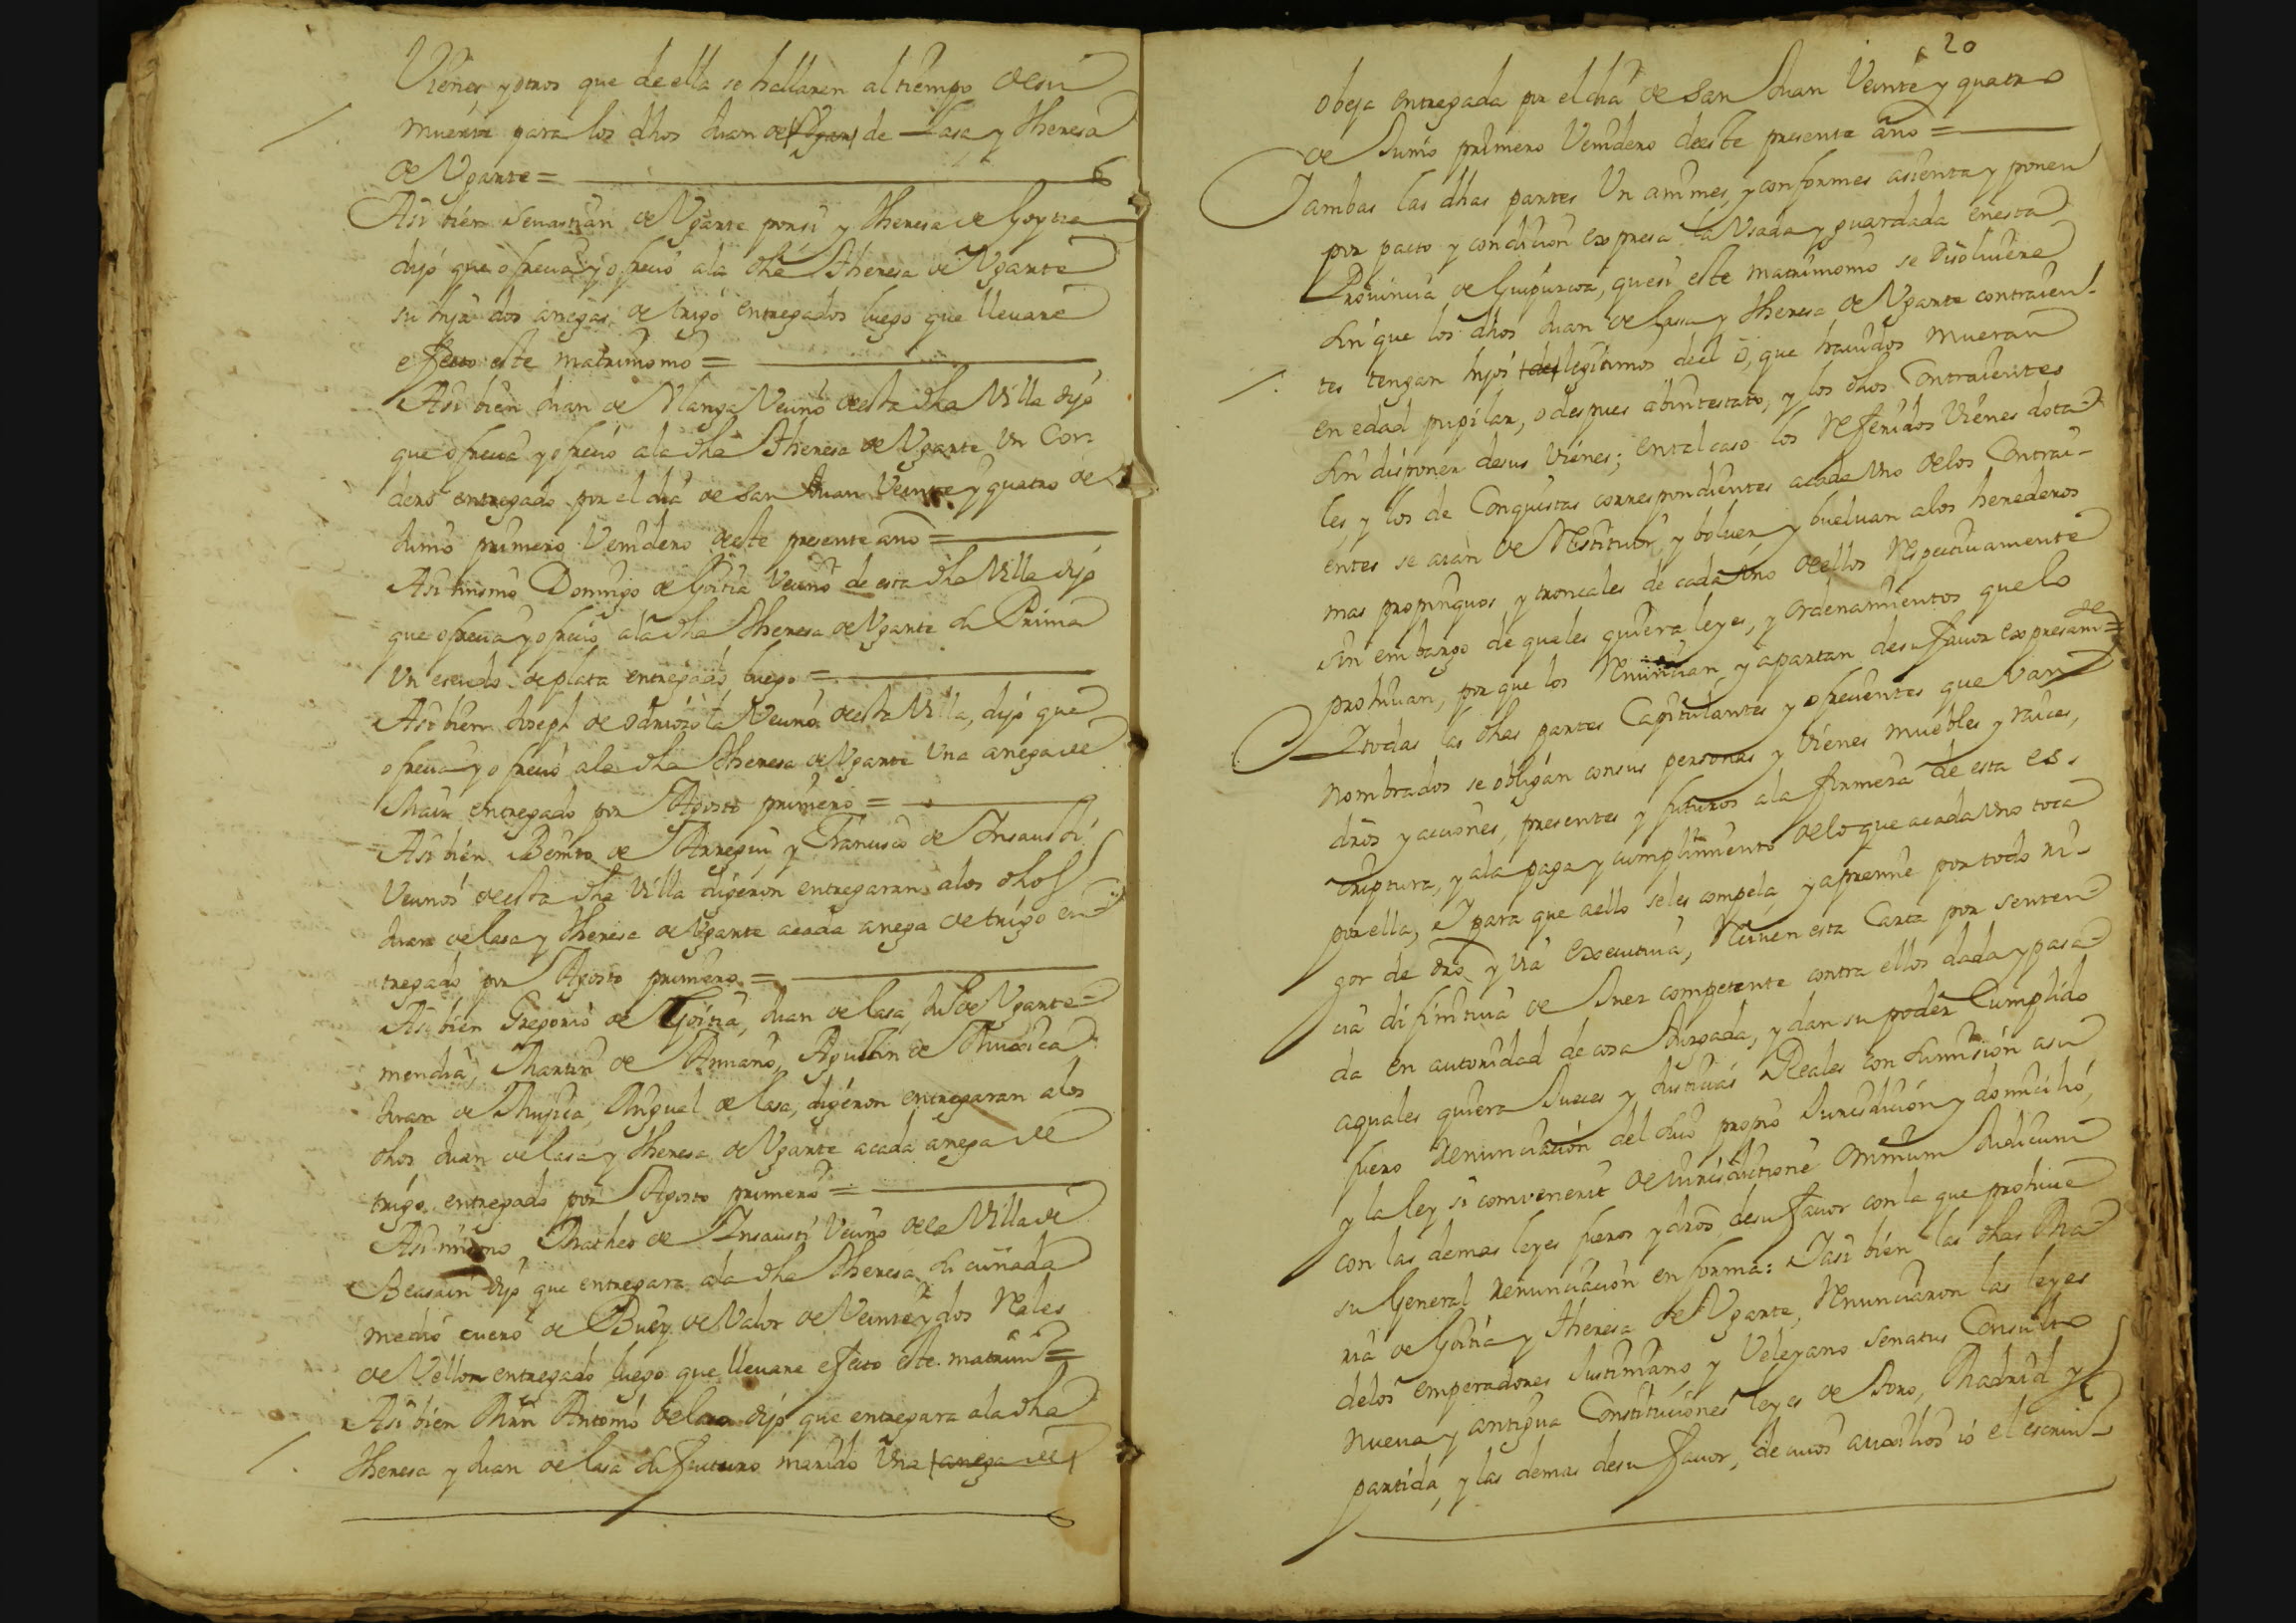 Vienes, y otros que de ella se hallaren al tiempo de su
muerte para los dhos Juan de Ugar de Lasa y Theresa
de Ugarte =
Asi bien Sevastian de Ugarte por si y Theresa de Goytia
dijo que ofrecia y ofrecio ala dha Theresa de Ugarte
su hija dos anegas de trigo entregados luego que llevare
efecto este matrimonio =
Asi bien Juan de Vlanga Vecino de esta dha Villa dijo
que ofrecia y ofrecio ala dha Theresa de Ugarte Un Cor-
dero entregado por el dia de San Juan Veinte y quatro de
Junio primero Venidero de este presente año =
Asi mismo Domingo de Goitia Vecino de esta dha Villa dijo
que ofrecia y ofrecio ala dha Theresa de Ugarte su Prima
Un escudo de plata entregado luego =
Asi bien Joseph de Odriozola Vecino de esta Villa, dijo que
ofrecia y ofrecio ala dha Theresa de Ugarte Una anega de
Maiz entregado por Agosto primero =
Asi bien Benito de Arregui y Francisco de Insausti
Vecinos de esta dha Villa digeron entregaran alos dhos
Juan de lasa y Theresa de Ugarte acada anega de trigo en-
tregado por Agosto primero =
Asi bien Gregorio de Goitia, Juan de lasa, de Ugarte-
mendia, Martin de Armano, Agustin de Muxica
Juan de Mujica, Miguel de lasa, digeron entregaran alos
dhos Juan de lasa y Theresa de Ugarte acada anega de
trigo entregado por Agosto primero =
Asi mismo Matheo de Insausti Vecino de la Villa de
Beasain dijo que entregara ala dha Theresa su cuñada
medio cuero de Buey de Valor de Veinte y dos Reales
de Vellon entregado luego que llevare efecto este matrim =
Asi bien Antonio de lasa dijo que entregara ala dha
Theresa y Juan de lasa su futuro marido Una anega de
20
obeja entregada por el dia de San Juan Veinte y quatro
de Junio primero Venidero de este presente año =
Y ambas las dhas partes Un animes, y conformes asienta y ponen
por pacto y condicion expresa la Usada y guardada en esta
Provincia de Guipuzcoa, que si este matrimonio se disolviere
sin que los dhos Juan de lasa y Theresa de Ugarte contraien-
tes tengan hijos de legitimos de el o, que havidos mueran
en edad pupilar, o despues abintestato, y los dhos Contraientes
sin disponer de sus Vienes; en tal caso los Referidos Vienes dota-
les, y los de Conquistas correspondientes acada Uno de los Contrai-
entes se aran de Restituir, y bolver y buelvan alos herederos
mas propinquos y troncales de cada Uno de ellos Respectivamente
sin embargo de quales quiera leyes, y ordenamientos que lo
prohivan, por que los Renuncian, y apartan de su favor expresam.te =
Y todas las dhas partes Capitulantes y ofrecientes que Van
nombrados se obligan con sus personas y Vienes muebles y raices,
dros y acciones, presentes y futuros ala firmeza de esta es-
criptura, y ala paga y cumplimiento de lo que acada Uno toca
por ella, y para que aello se les compela, y apremie por todo ri-
gor de dro y Via executiva, Reciven esta Carta por senten-
cia difinitiva de Juez competente contra ellos dada y pasa-
da en autoridad de cosa Juzgada, y dan su poder Cumplido
aquales quiera Jueces y Justicias Reales con sumision asu
fuero Renunciacion del suio propio Jurisdicion y domicilio,
y la ley si convenerit de Jurisdictione omnium Judicum
con las demas leyes fueros y dros de su favor con la que prohive
su General Renunciacion en forma: Y asi bien las dhas Ma-
ria de Goitia y Theresa de Ugarte, Renunciaron las leyes
delos emperadores Justiniano, y Veleyano Senatus Consulto
nueva y antigua Constituciones leyes de Toro, Madrid y
partida, y las demas de su favor, de cuios auxilios io el escriv-